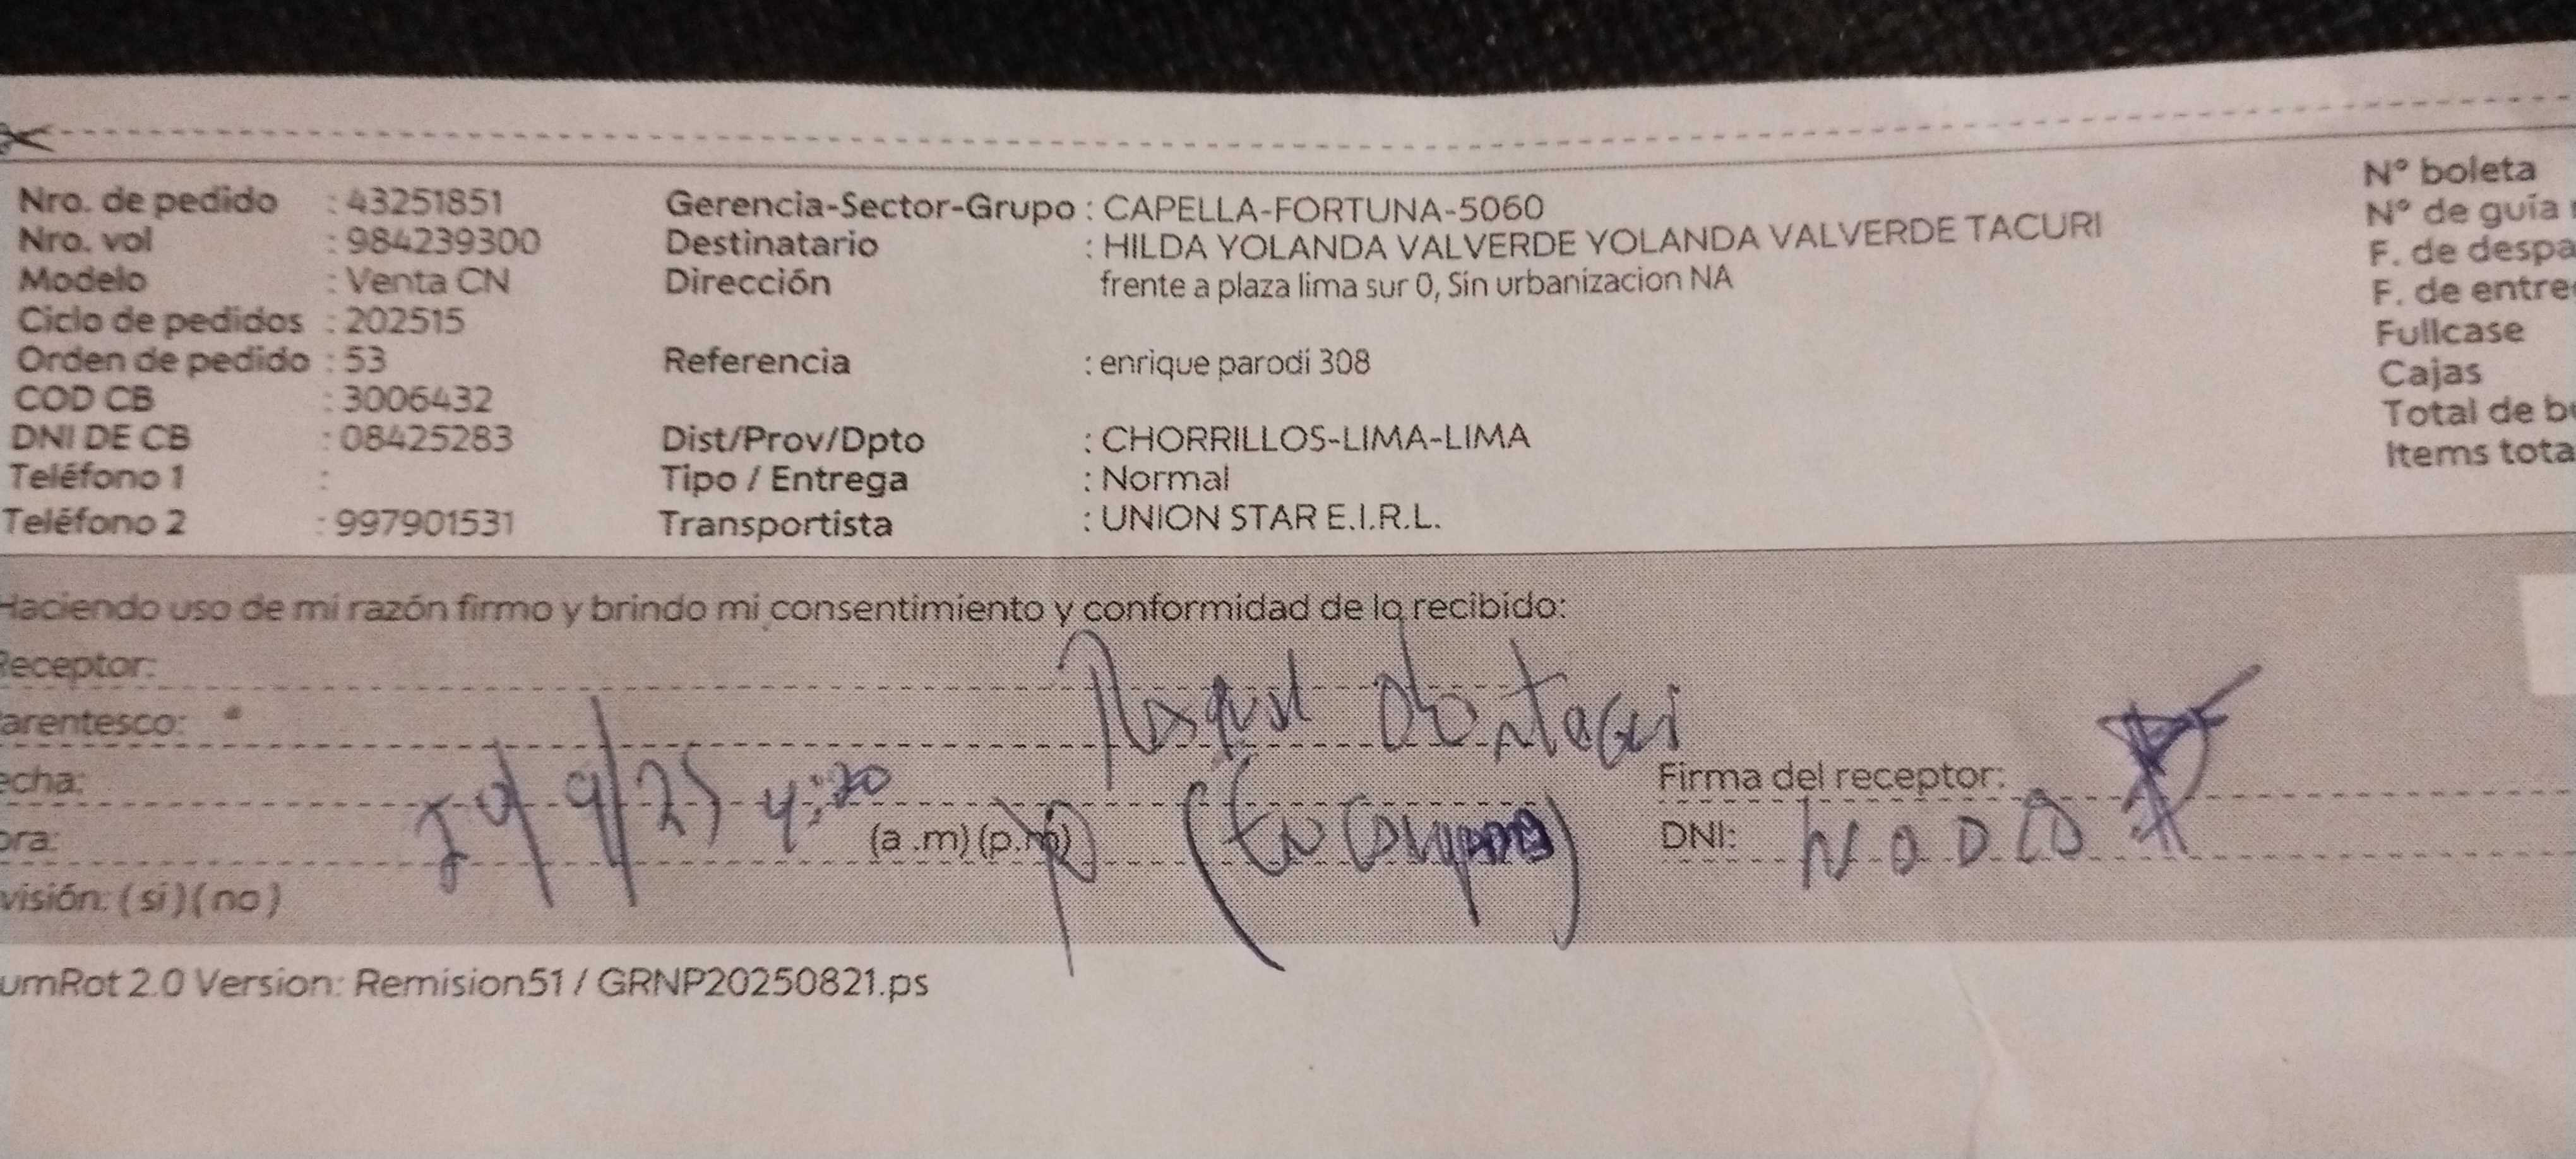 Nro. de pedido : 43251851 Gerencia-Sector-Grupo : CAPELLA-FORTUNA-5060 N° boleta
Nro. vol : 984239300 Destinatario : HILDA YOLANDA VALVERDE YOLANDA VALVERDE TACURI N° de guía
Modelo : Venta CN Dirección frente a plaza lima sur 0, Sin urbanizacion NA F. de despa
Ciclo de pedidos : 202515 F. de entre
Orden de pedido : 53 Referencia : enrique parodi 308 Fullcase
COD CB : 3006432 Cajas
DNI DE CB : 08425283 Dist/Prov/Dpto : CHORRILLOS-LIMA-LIMA Total de b
Teléfono 1 : Tipo / Entrega : Normal Items tota
Teléfono 2 : 997901531 Transportista : UNION STAR E.I.R.L.
Haciendo uso de mi razón firmo y brindo mi consentimiento y conformidad de lo recibido:
Receptor:
arentesco:
echa: 9/25 4:20 Firma del receptor:
ora: (a .m) (p.m) DNI:
visión: ( si ) ( no )
umRot 2.0 Version: Remision51 / GRNP20250821.ps